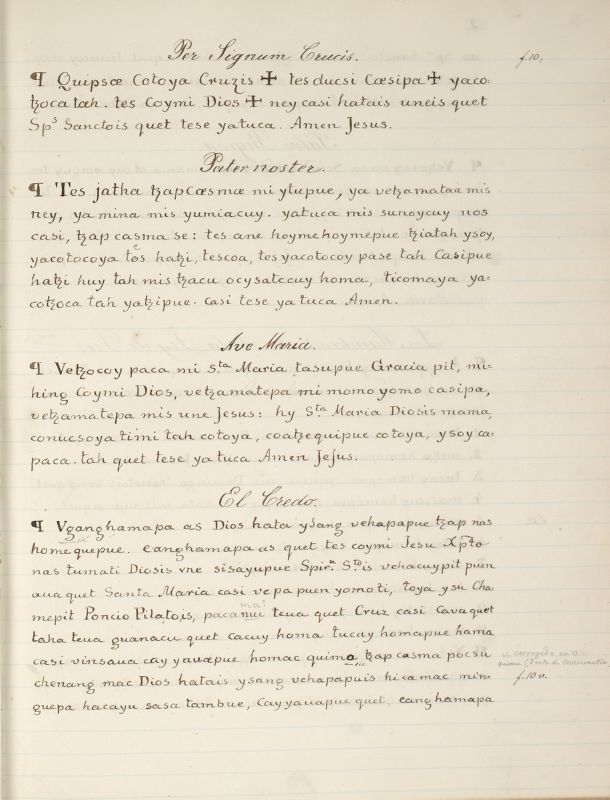 Per Signum Crucis.
f.10.
¶ Quipsœ Cotoya Cruzis ✠ tes ducsi Cœsipa ✠ yaco-
tzoca tœh. tes Coymi Dios ✠ ney casi hatais uneis quet
Sp.s Sanctois quet tese yatuca. Amen Jesus.
Pater noster.
¶ Tes jatha tzapCœsmœ mi ytupue, ya vetzamataa mis
ney, ya mina mis yumiacuy. yatuca mis sunoycuy nos
casi, tzap casma se: tes ane hoymehoymepue tziatah ysoy,
yacotocoya tos hatzi, tescoa, tes yacotocoy pase tah Casipue
e
hatzi huy tah mis tzacu ocysateccuy homa, ticomaya ya-
cotzoca tah yatzipue. Casi tese ya tuca Amen.
Ave Maria.
¶ Vetzocoy paca mi S.ta Maria tasupue Gracia pit, mi-
hing Coymi Dios, vetzamatepa mi momo yomo casipa,
vetzamatepa mis une Jesus: hy S.ta Maria Diosis mama,
conucsoya timi tah cotoya, coatzequipue cotoya, ysoy ca-
paca. tah quet tese ya tuca Amen Jesus.
El Credo.
¶ Vganghamapa as Dios hata ysang vehapapue tzap nas
homequepue. eanghamapa as quet tes coymi Jesu Xpto
nas tumati Diosis vne sisayupue Spir.n S.tois vehacuy pit puen
aua quet Santa Maria casi ve pa puen yomoti, toya ysu Cha-
mepit Poncio Pilatois, pacanuc teua quet Cruz casi Cava quet
mat
taha teua guanacu quet cacuy homa tucay homapue hama
casi vinsaua cay yauœpue homac quimo tzap casma pocsu
sic
chenang mac Dios hatais ysang vehapapuis hicamac min-
f.10 v.
guepa hacayu sasa tambue, Cay yauapue quet eanghamapa